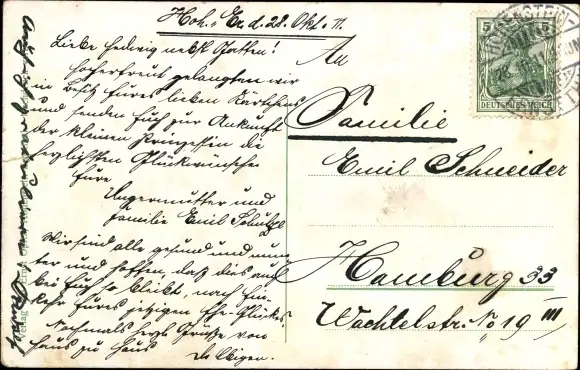 Hoh.-Er. d. 28. Okt. 11.
Liebe Hedwig nebst Gatten!
Hocherfreut gelangten wir
in Besitz Eures lieben Kärtchens
und senden Euch zur Ankunft
der kleinen Prinzessin die
herzlichsten Glückwünsche
Eure
und
Familie Emil Schulze
Wir sind alle gesund und mun-
ter und hoffen, daß dies auch
bei Euch so bleibt, nach
Eures jetzigen Ehe-Glückes.
Nochmals herzl. Grüße von
Haus zu Haus
Die Obigen.
An
Familie
Emil Schneider
Hamburg 33
Wachtelstr. No 19 III
5 5
DEUTSCHES REICH